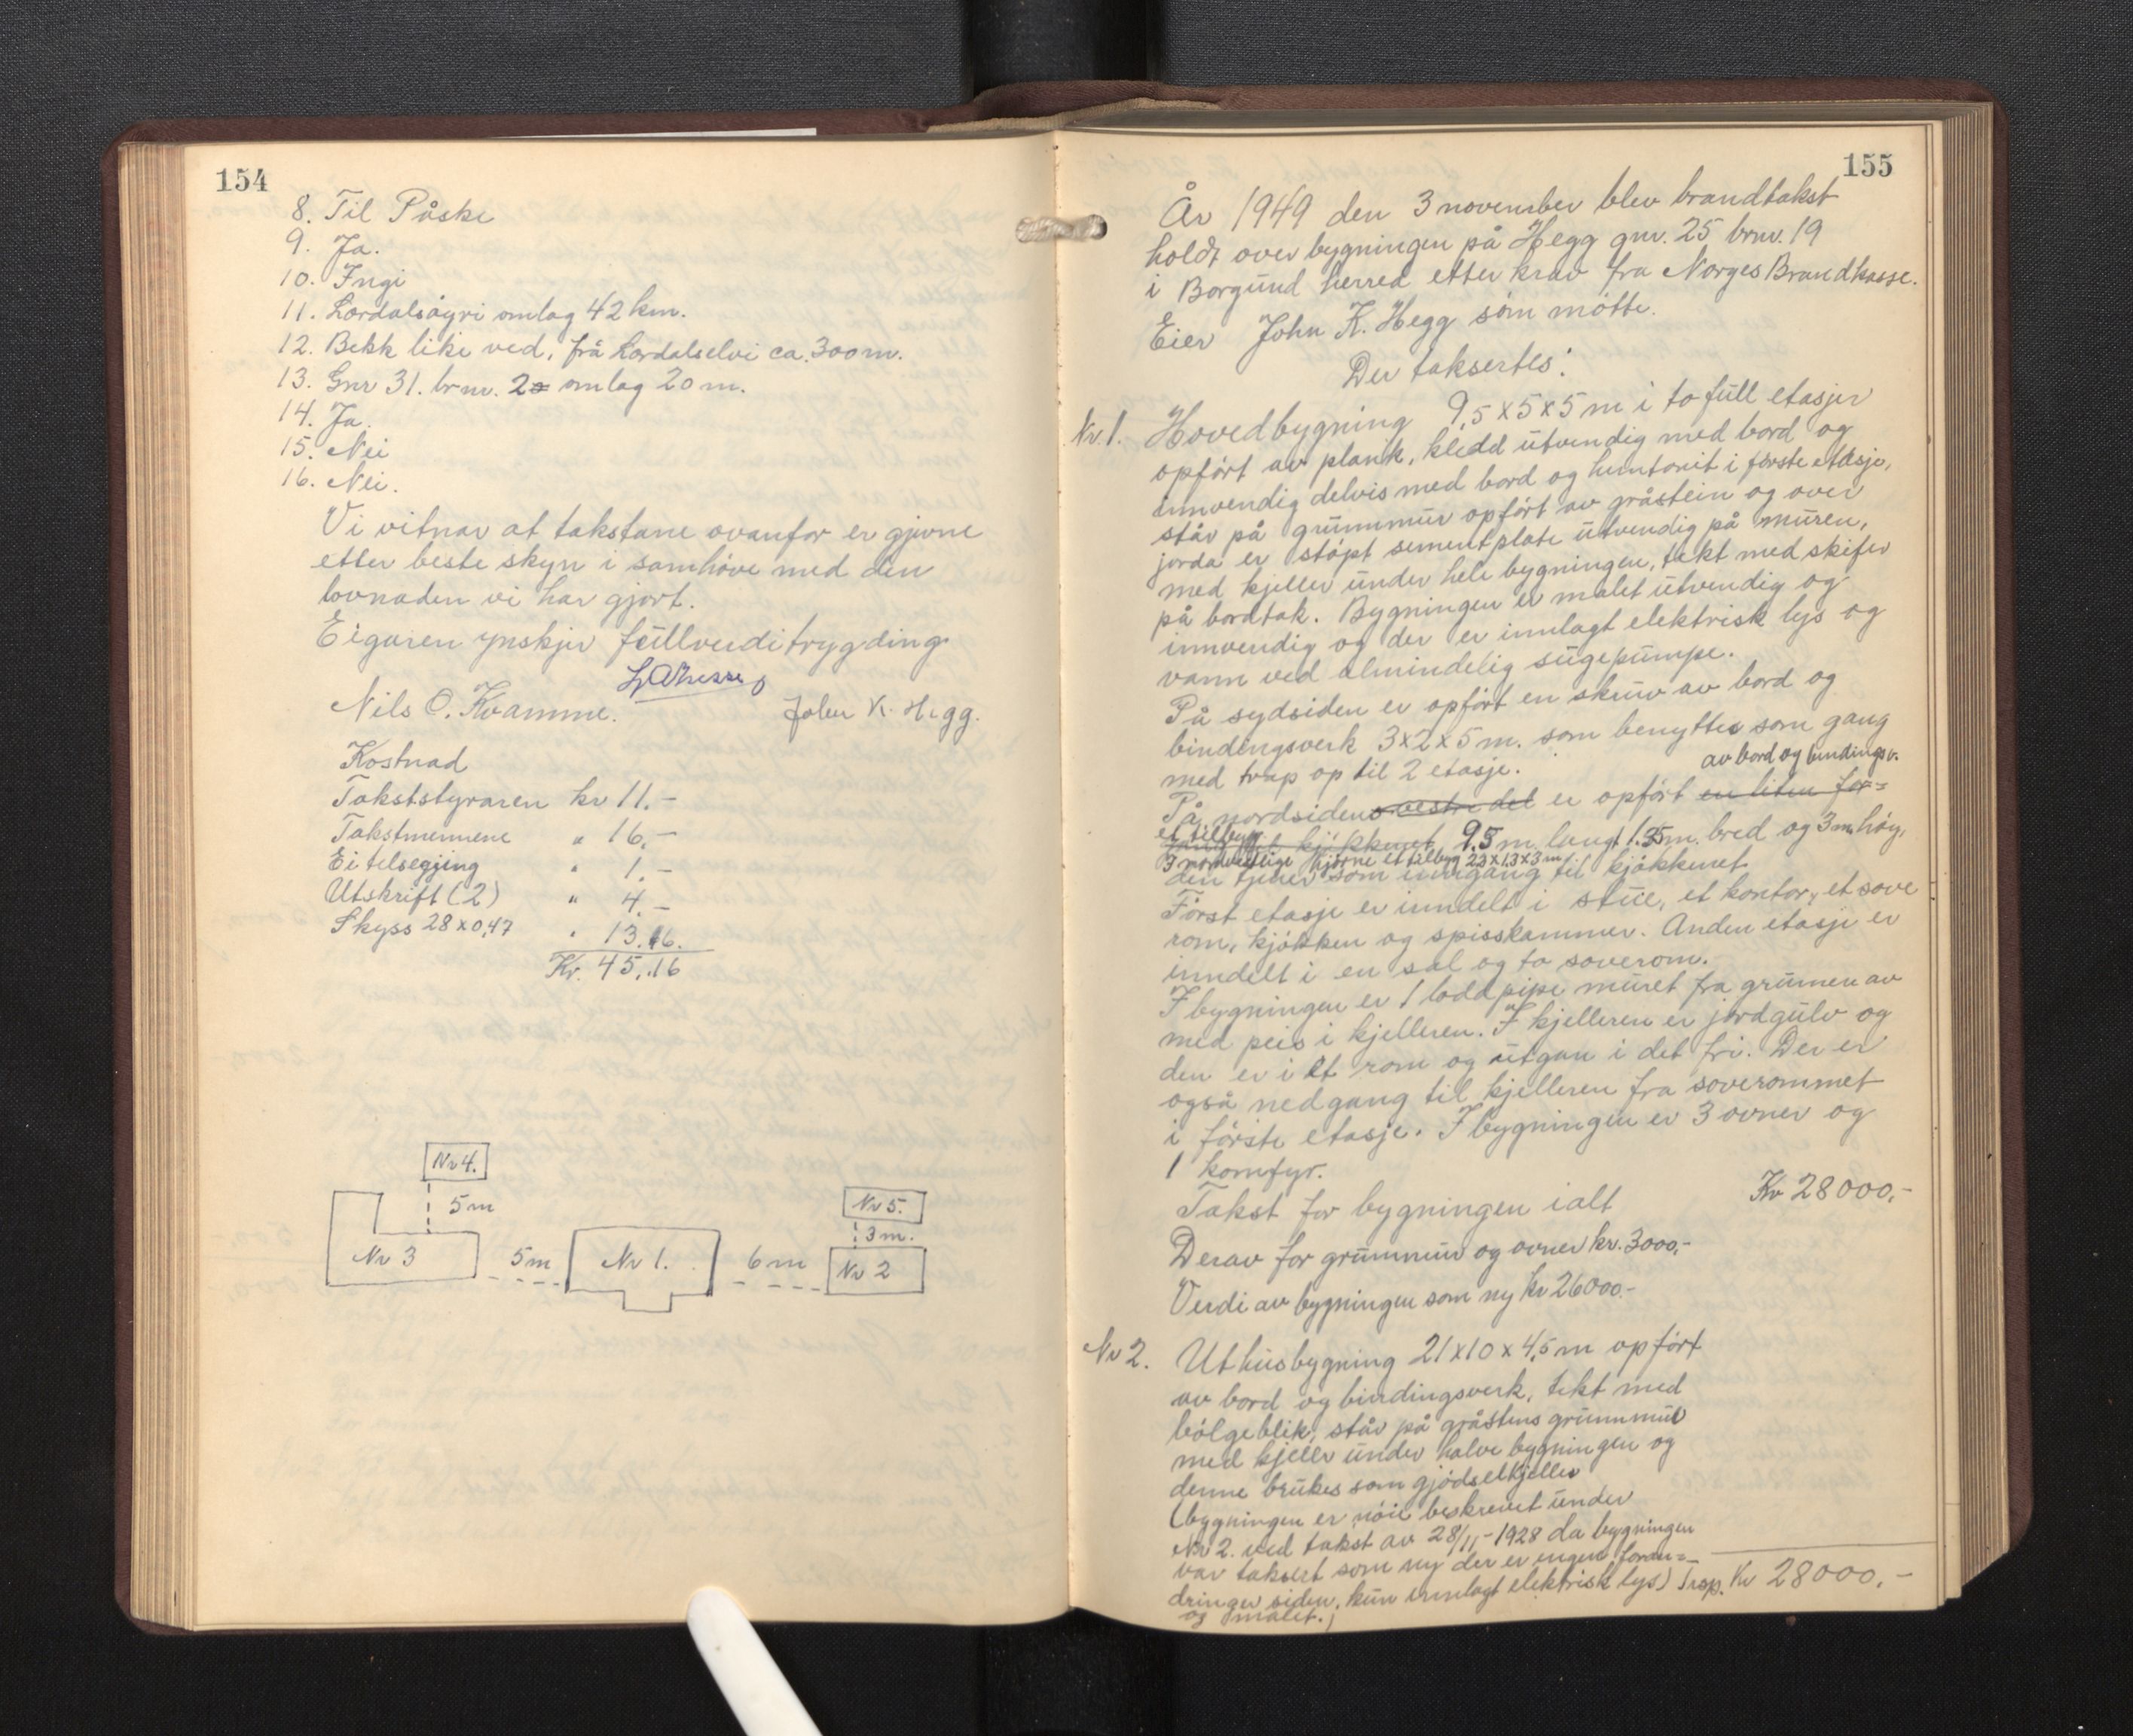 154
8. Til Påske
9. Ja.
10. Ingi
11. Lærdalsøyri omlag 42 km.
12. Bekk like ved, frå Lærdalselvi ca. 300 m.
13. Gnr 31. brnr. 2 omlag 20 m.
14. Ja.
15. Nei
16. Nei.
Vi vitnar at takstane ovanfor er gjevne
etter beste skyn i samhøve med den
lovnaden vi har gjort.
Eigaren ynskjer fullverditrygding
Nils O. Kvamme.
John K. Hegg.
Kostnad
Takststyraren kr 11.-
Takstmennene " 16.-
Ei tilsegjing " 1.-
Utskrift (2) " 4.-
Skyss 28 x 0,47 " 13.16.
Kr. 45.16
Nr 4.
5 m
Nr 3
5 m
Nr 1.
6 m
Nr 5.
3 m.
Nr 2
155
År 1949 den 3 november blev brandtakst
holdt over bygningen på Hegg gnr. 25 brnr. 19
i Borgund herred etter krav fra Norges Brandkasse.
Eier John K. Hegg som møtte.
Der taksertes:
Nr. 1. Hovedbygning 9,5 x 5 x 5 m i to full etasjer
opført av plank, kledd utvendig med bord og
innvendig delvis med bord og huntonit i første etasje,
står på grunnmur opført av gråstein og over
jorda er støpt sementplate utvendig på muren,
med kjeller under hele bygningen, tekt med skifer
på bordtak. Bygningen er malet utvendig og
innvendig og der er innlagt elektrisk lys og
vann ved almindelig sugepumpe.
På sydsiden er opført en skruv av bord og
bindingsverk 3 x 2 x 5 m. som benyttes som gang
med trap op til 2 etasje.
av bord og bindingsv.
På nordsiden vestre del er opført en liten for-
et tilbygg kjøkkenet 9.5 m langt 1.35 m. bred og 3 m. høg,
I nordvestlige hjørne et tilbyg 2.3 x 1.3 x 3 m
den tjener som inngang til kjøkkenet.
Først etasje er inndelt i stue, et kontor, et sove
rom, kjøkken og spisskammer. Anden etasje er
inndelt i en sal og to soverom.
I bygningen er 1 lodd pipe muret fra grunnen av
med peis i kjelleren. I kjelleren er jordgulv og
den er i et rom og utgan i det fri. Der er
også nedgang til kjelleren fra soverommet
i første etasje. I bygningen er 3 ovner og
1 komfyr.
Takst for bygningen ialt Kr 28000,-
Derav for grunnmur og ovner kr. 3000,-
Verdi av bygningen som ny kr 26000.-
Nr 2. Uthusbygning 21 x 10 x 4,5 m opført
av bord og bindingsverk, tekt med
bølgeblik, står på gråstens grunnmur
med kjeller under halve bygningen og
denne brukes som gjødselkjeller
(bygningen er nøie beskrevet under
Nr 2. ved takst av 28/11-1928 da bygningen
var taksert som ny der er ingen foran-
dringer siden, kun innlagt elektrisk lys) Trsp. Kr 28000.-
og malet.)